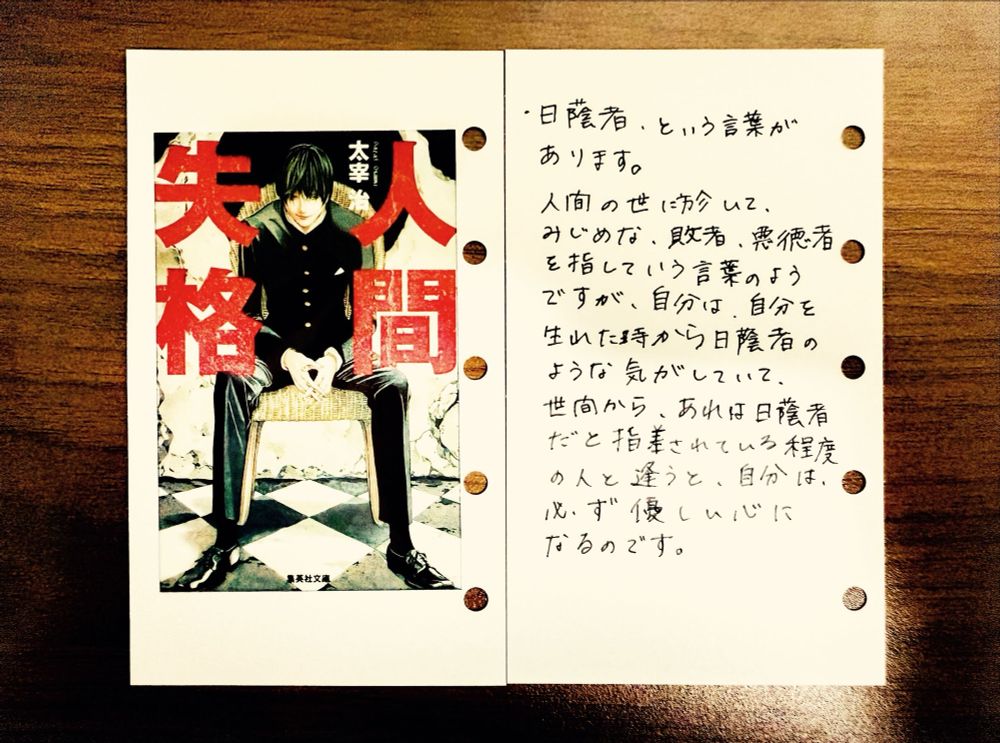 人間
失格
太宰 治
集英社文庫
・日蔭者、という言葉が
あります。
人間の世に於いて、
みじめな、敗者、悪徳者
を指していう言葉のよう
ですが、自分は、自分を
生れた時から日蔭者の
ような気がしていて、
世間から、あれは日蔭者
だと指差されている程度
の人と逢うと、自分は、
必ず優しい心に
なるのです。